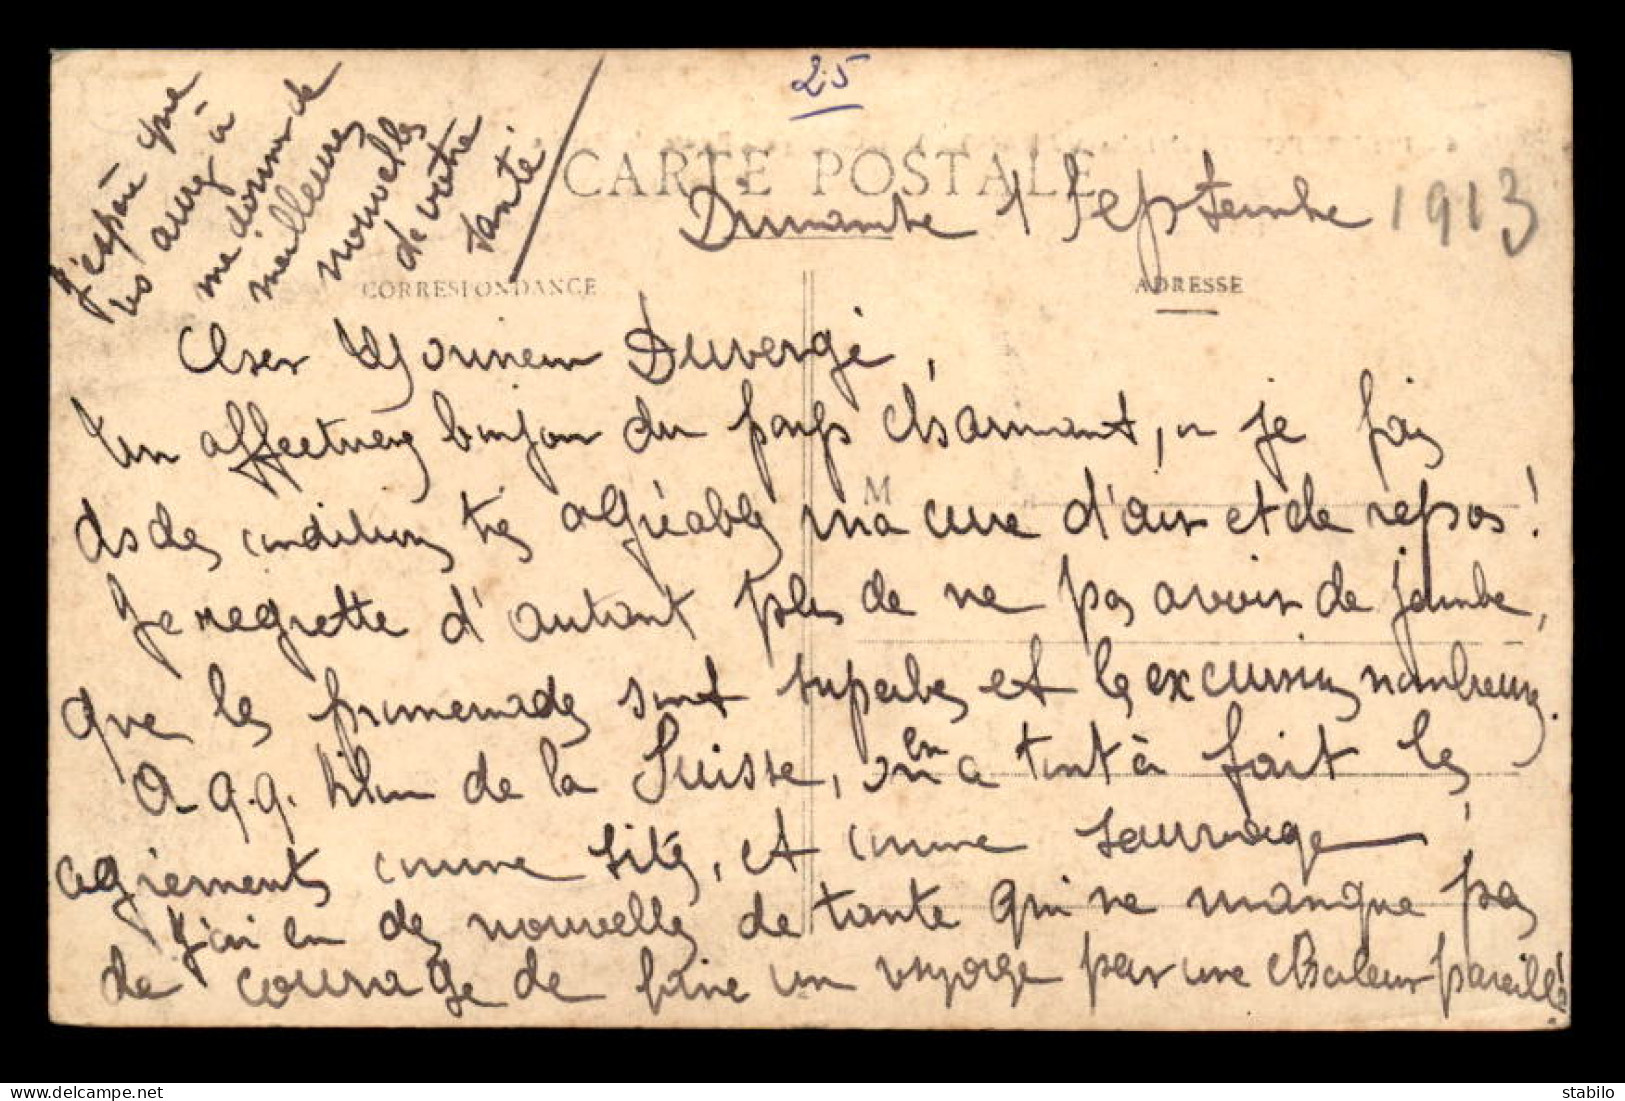 25
CARTE POSTALE
Dimanche 1 Septembre 1913
CORRESPONDANCE
ADRESSE
J'espère que
vs aurez à
me donner de
meilleures
nouvelles
de votre
santé
Cher Monsieur Duvergé,
Un affectueux bonjour du pays charmant, où je fais
ds des conditions très agréables ma cure d'air et de repos !
M
Je regrette d'autant plus de ne pas avoir de jambe,
que les promenades sont superbes et les excursions nombreuses.
A q.q. kilom de la Suisse, on en a tout à fait les
agréments comme site, et comme sauvage !
J'ai eu des nouvelles de tante qui ne manque pas
de courage de faire un voyage par une chaleur pareille !
stabilo